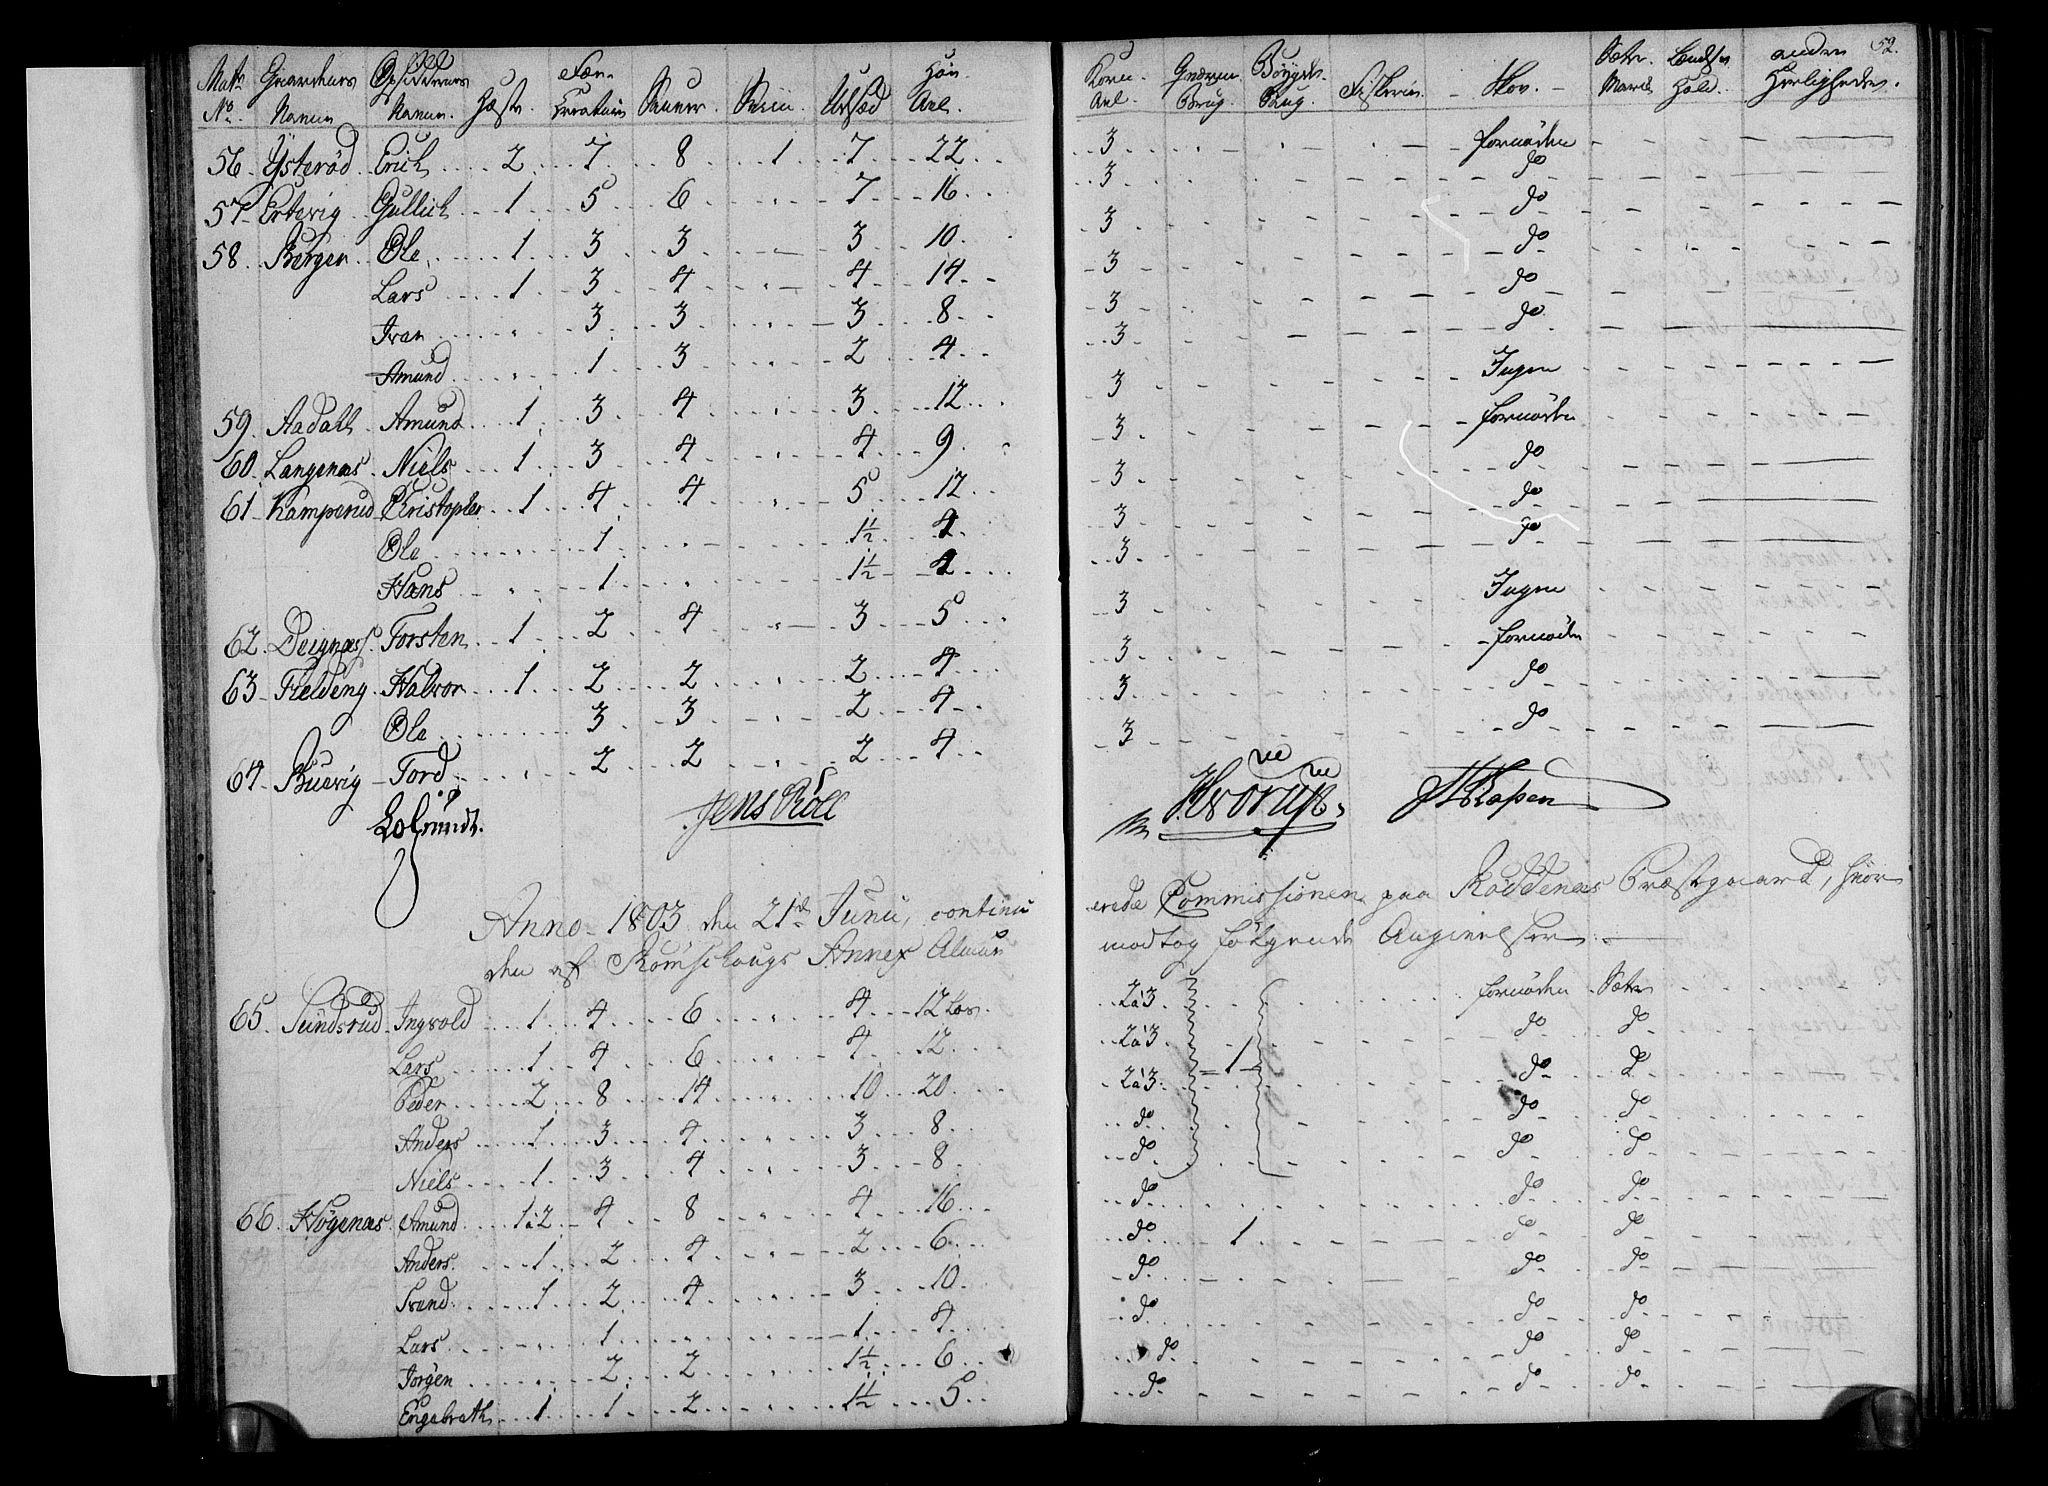 52.
Matr No. Gaardens Navn Opsidderens Navn. Heste. Fæe Kreaturer Sauer Sviin Udsæd Høe Avl. Korn Avl. Qværne Brug. Bøygsle Brug. Fiskerie. Skov. Sæter Havnes Leedsse Hold. andre Herligheder.
56 Ysterød Erich 2 7 8 1 7 22 3 fornøden
57 Ertevig Gullich 1 5 6 7 16 3 do
58 Berger Ola 1 3 3 3 10 3 do
Lars 1 3 4 4 14 3 do
Ivar 3 3 3 8 3 do
Amund 1 3 2 4 3 do
59 Aadall Amund 1 3 4 3 12 3 Ingen
60 Langenæs Niels 1 3 4 4 9 3 fornøden
61 Kamperud Christopher 1 4 4 5 12 3 do
Ola 1 1½ 4 3 do
Hans 1 1½ 2 3 do
62 Deignæs Torsten 1 2 4 3 5 3 Ingen
63 Fieldeng Halvor 1 2 2 2 4 3 fornøden
Ola 3 3 2 4 3 do
64 Buevig Tord 2 2 2 4 3 do
Jens Röll
Anno 1803 den 21de Junii, continuerede Commissionen paa Röddenæs Præstegaard, hvor
den af Römschougs Annex Almue modtog følgende Angivelser
65 Sundsrud Ingvold 1 4 6 4 12 Læs 2 a 3 fornøden Sæter
Lars 1 4 6 4 12 2 a 3 do do
Peder 2 8 14 10 20 2 a 3 1 do do
Anders 1 3 4 3 8 do do do
Niels 1 3 4 3 8 do do do
66 Høgenæs Amund 1 a 2 4 8 4 16 do do do
Anders 1 2 4 2 6 do 1 do do
Svend 1 2 4 3 10 do do do
Lars 1 1 4 do do do
Jörgen 2 2 1½ 6 do do do
Engebrath 1 1 2 1½ 5 do do do